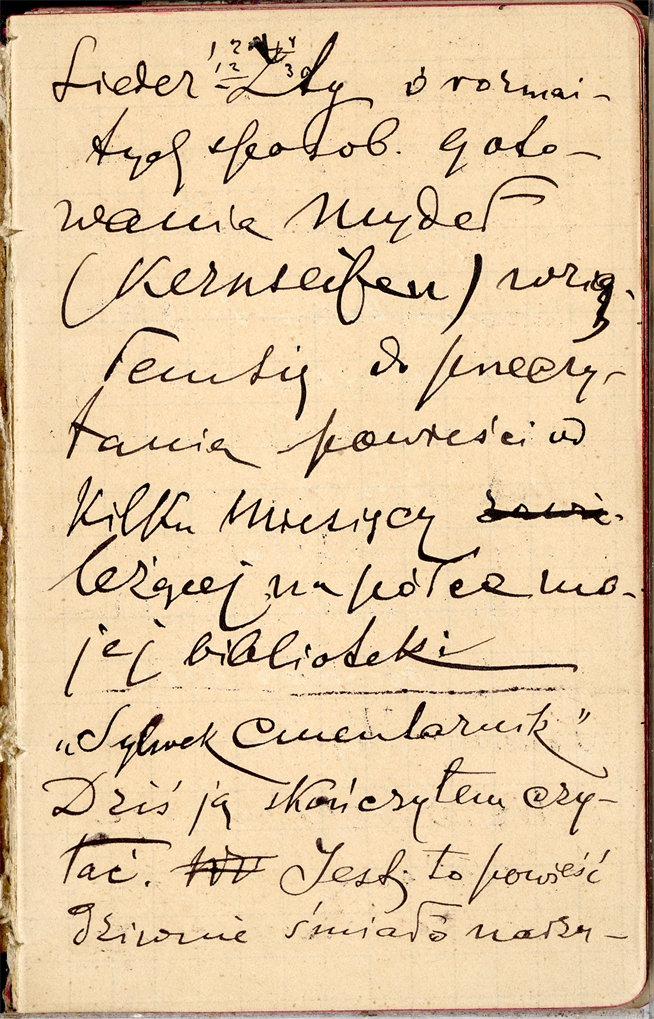 Sieder' Zty o rozmai-
tych sposob. goto-
wania mydeł
(Kernseifen) wzią-
łem się do przeczy-
tania powieści od
kilku miesięcy
leżącej na półce mo-
jej biblioteki
„Sylwek Cmentarnik”
Dziś ją skończyłem czy-
tać. Jest to powieść
dziwnie śmiało nadzy-